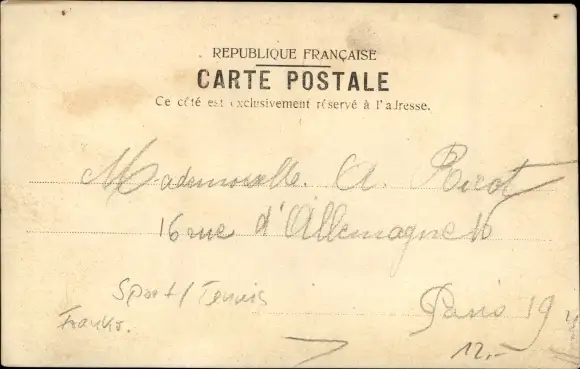 REPUBLIQUE FRANÇAISE
CARTE POSTALE
Ce côté est exclusivement réservé à l'adresse.
Mademoiselle. A. Picot
16 rue d'Allemagne 16
Sport/Tennis
Paris 19
12.-